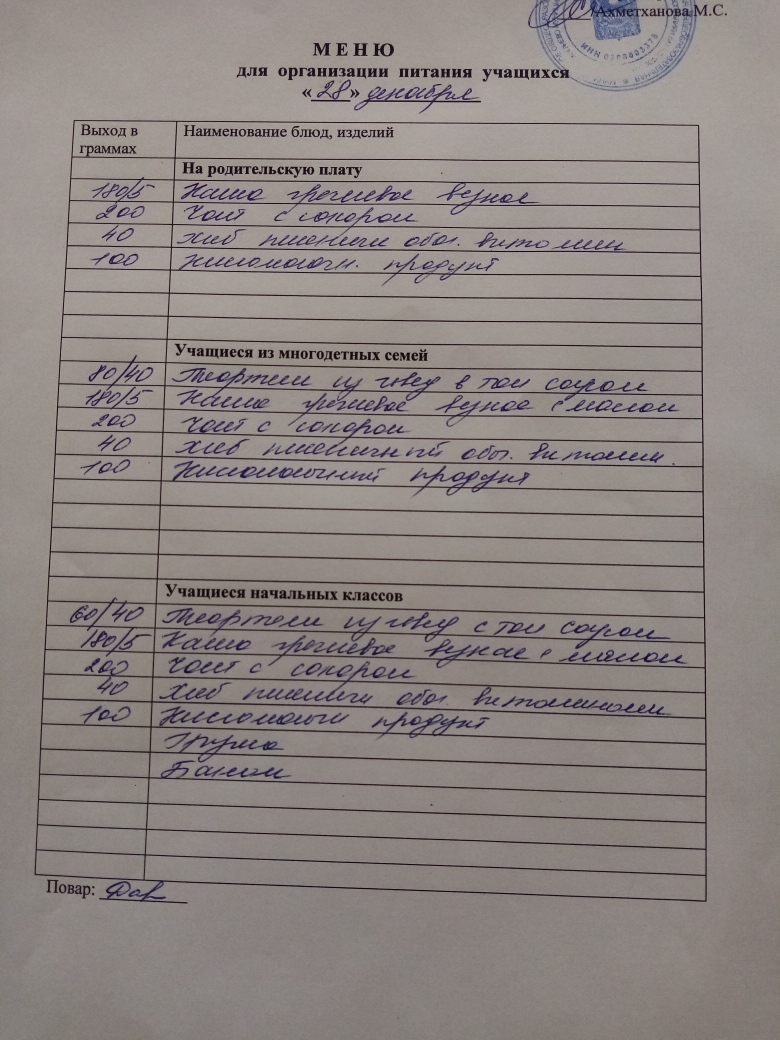 Ахметханова М.С.
МЕНЮ
для организации питания учащихся
«28» декабря
Выход в граммах Наименование блюд, изделий
На родительскую плату
180/5 Каша гречневая вязкая
200 Чай с сахаром
40 Хлеб пшеничн обог. витамин
100 Кисломолочн. продукт
Учащиеся из многодетных семей
80/40 Тефтели из говяд в том соусом
180/5 Каша гречневая вязкая с маслом
200 Чай с сахаром
40 Хлеб пшеничный обог. витамин.
100 Кисломолочный продукт
Учащиеся начальных классов
60/40 Тефтели из говяд с том соусом
180/5 Каша гречневая вязкая с маслом
200 Чай с сахаром
40 Хлеб пшеничн обог. витаминами
100 Кисломолочн продукт
Груша
Банан
Повар: